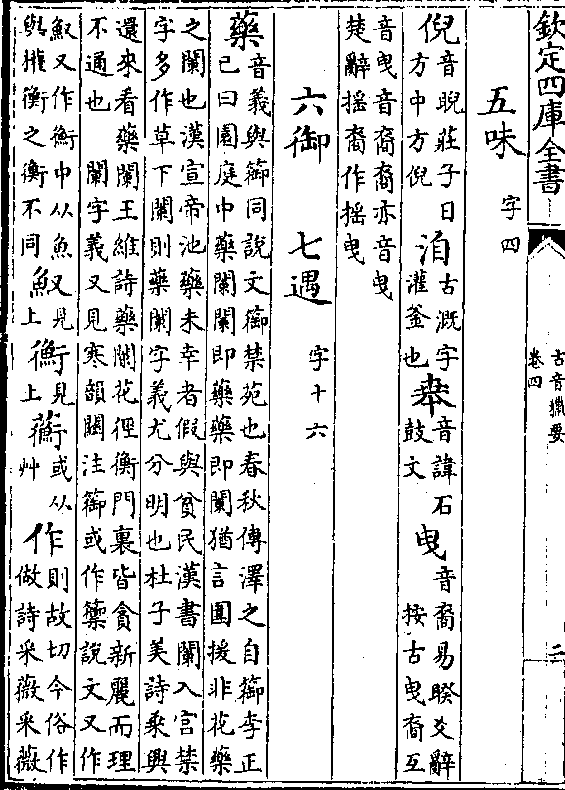 欽定四庫全書
古音獵要
卷四
二
五味 字四
倪 音睨莊子曰
方中方倪
洎 古溉字
灌釜也
𠦪 音諱石
鼓文
曳 音裔易睽爻辭
按古曳裔互
音曳音裔裔亦音曳
楚辭搖裔作搖曳
六御 七遇 字十六
藥 音義與籞同說文籞禁苑也春秋傳澤之自籞李正
已曰園庭中藥闌闌即藥藥即闌猶言圍援非花藥
之闌也漢宣帝池藥未幸者假與貧民漢書闌入宮禁
字多作草下闌則藥闌字義尤分明也杜子美詩乘興
還來看藥闌王維詩藥闌花徑衡門裏皆貪新麗而理
不通也 闌字義又見寒韻闌注籞或作籞說文又作
䱷又作衡中从魚
與權衡之衡不同
䱷 又見
上
衡 見
上
蘅 或从
艸
作 則故切今俗作
做詩采薇采薇